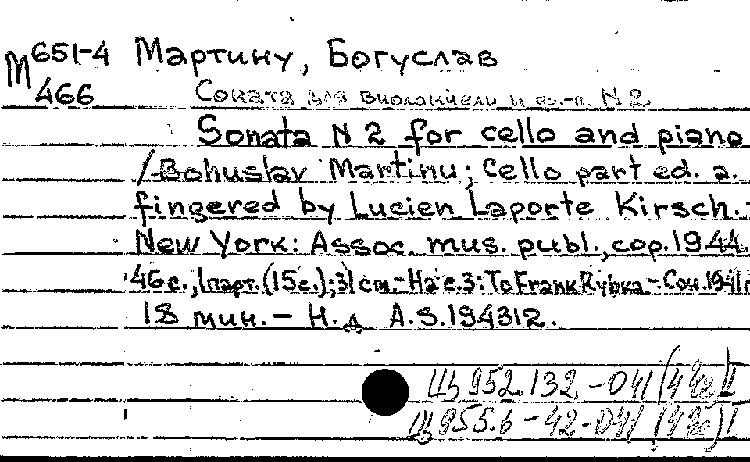 М651-4 Мартину, Богуслав
466 Соната для виолончели и ф.-п. N 2
Sonata N 2 for cello and piano
/ Bohuslav Martinu; Cello part ed. a.
fingered by Lucien Laporte Kirsch.-
New York: Assoc. mus. publ., cop. 1944.
46 с., 1 парт. (15 с.); 31 см.- На с. 3: To Frank Rybka.- Соч. 1941 г.
18 мин. - Н.д A.S.194312.
Ц 952.132-041 (49г) 1
Ц 955.6-42-041 (49г) 1